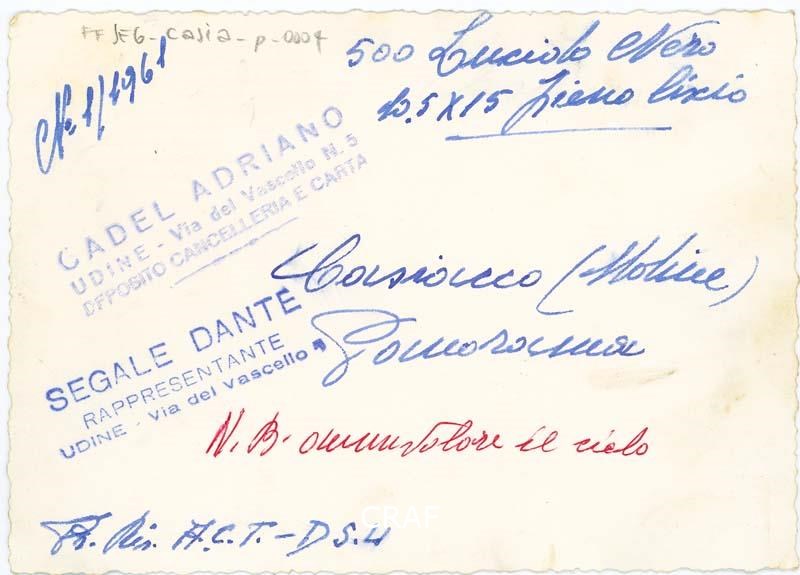 FFSEG-casia-p-0004
500 Lucido Nero
10.5X15 pieno liscio
No 1/1961
CADEL ADRIANO
UDINE - Via del Vascello N. 5
DEPOSITO CANCELLERIA E CARTA
Casiacco (Moline)
Panorama
SEGALE DANTE
RAPPRESENTANTE
UDINE - Via del Vascello
N.B. annuvolare il cielo
A.C.T. - D S.4
CRAF